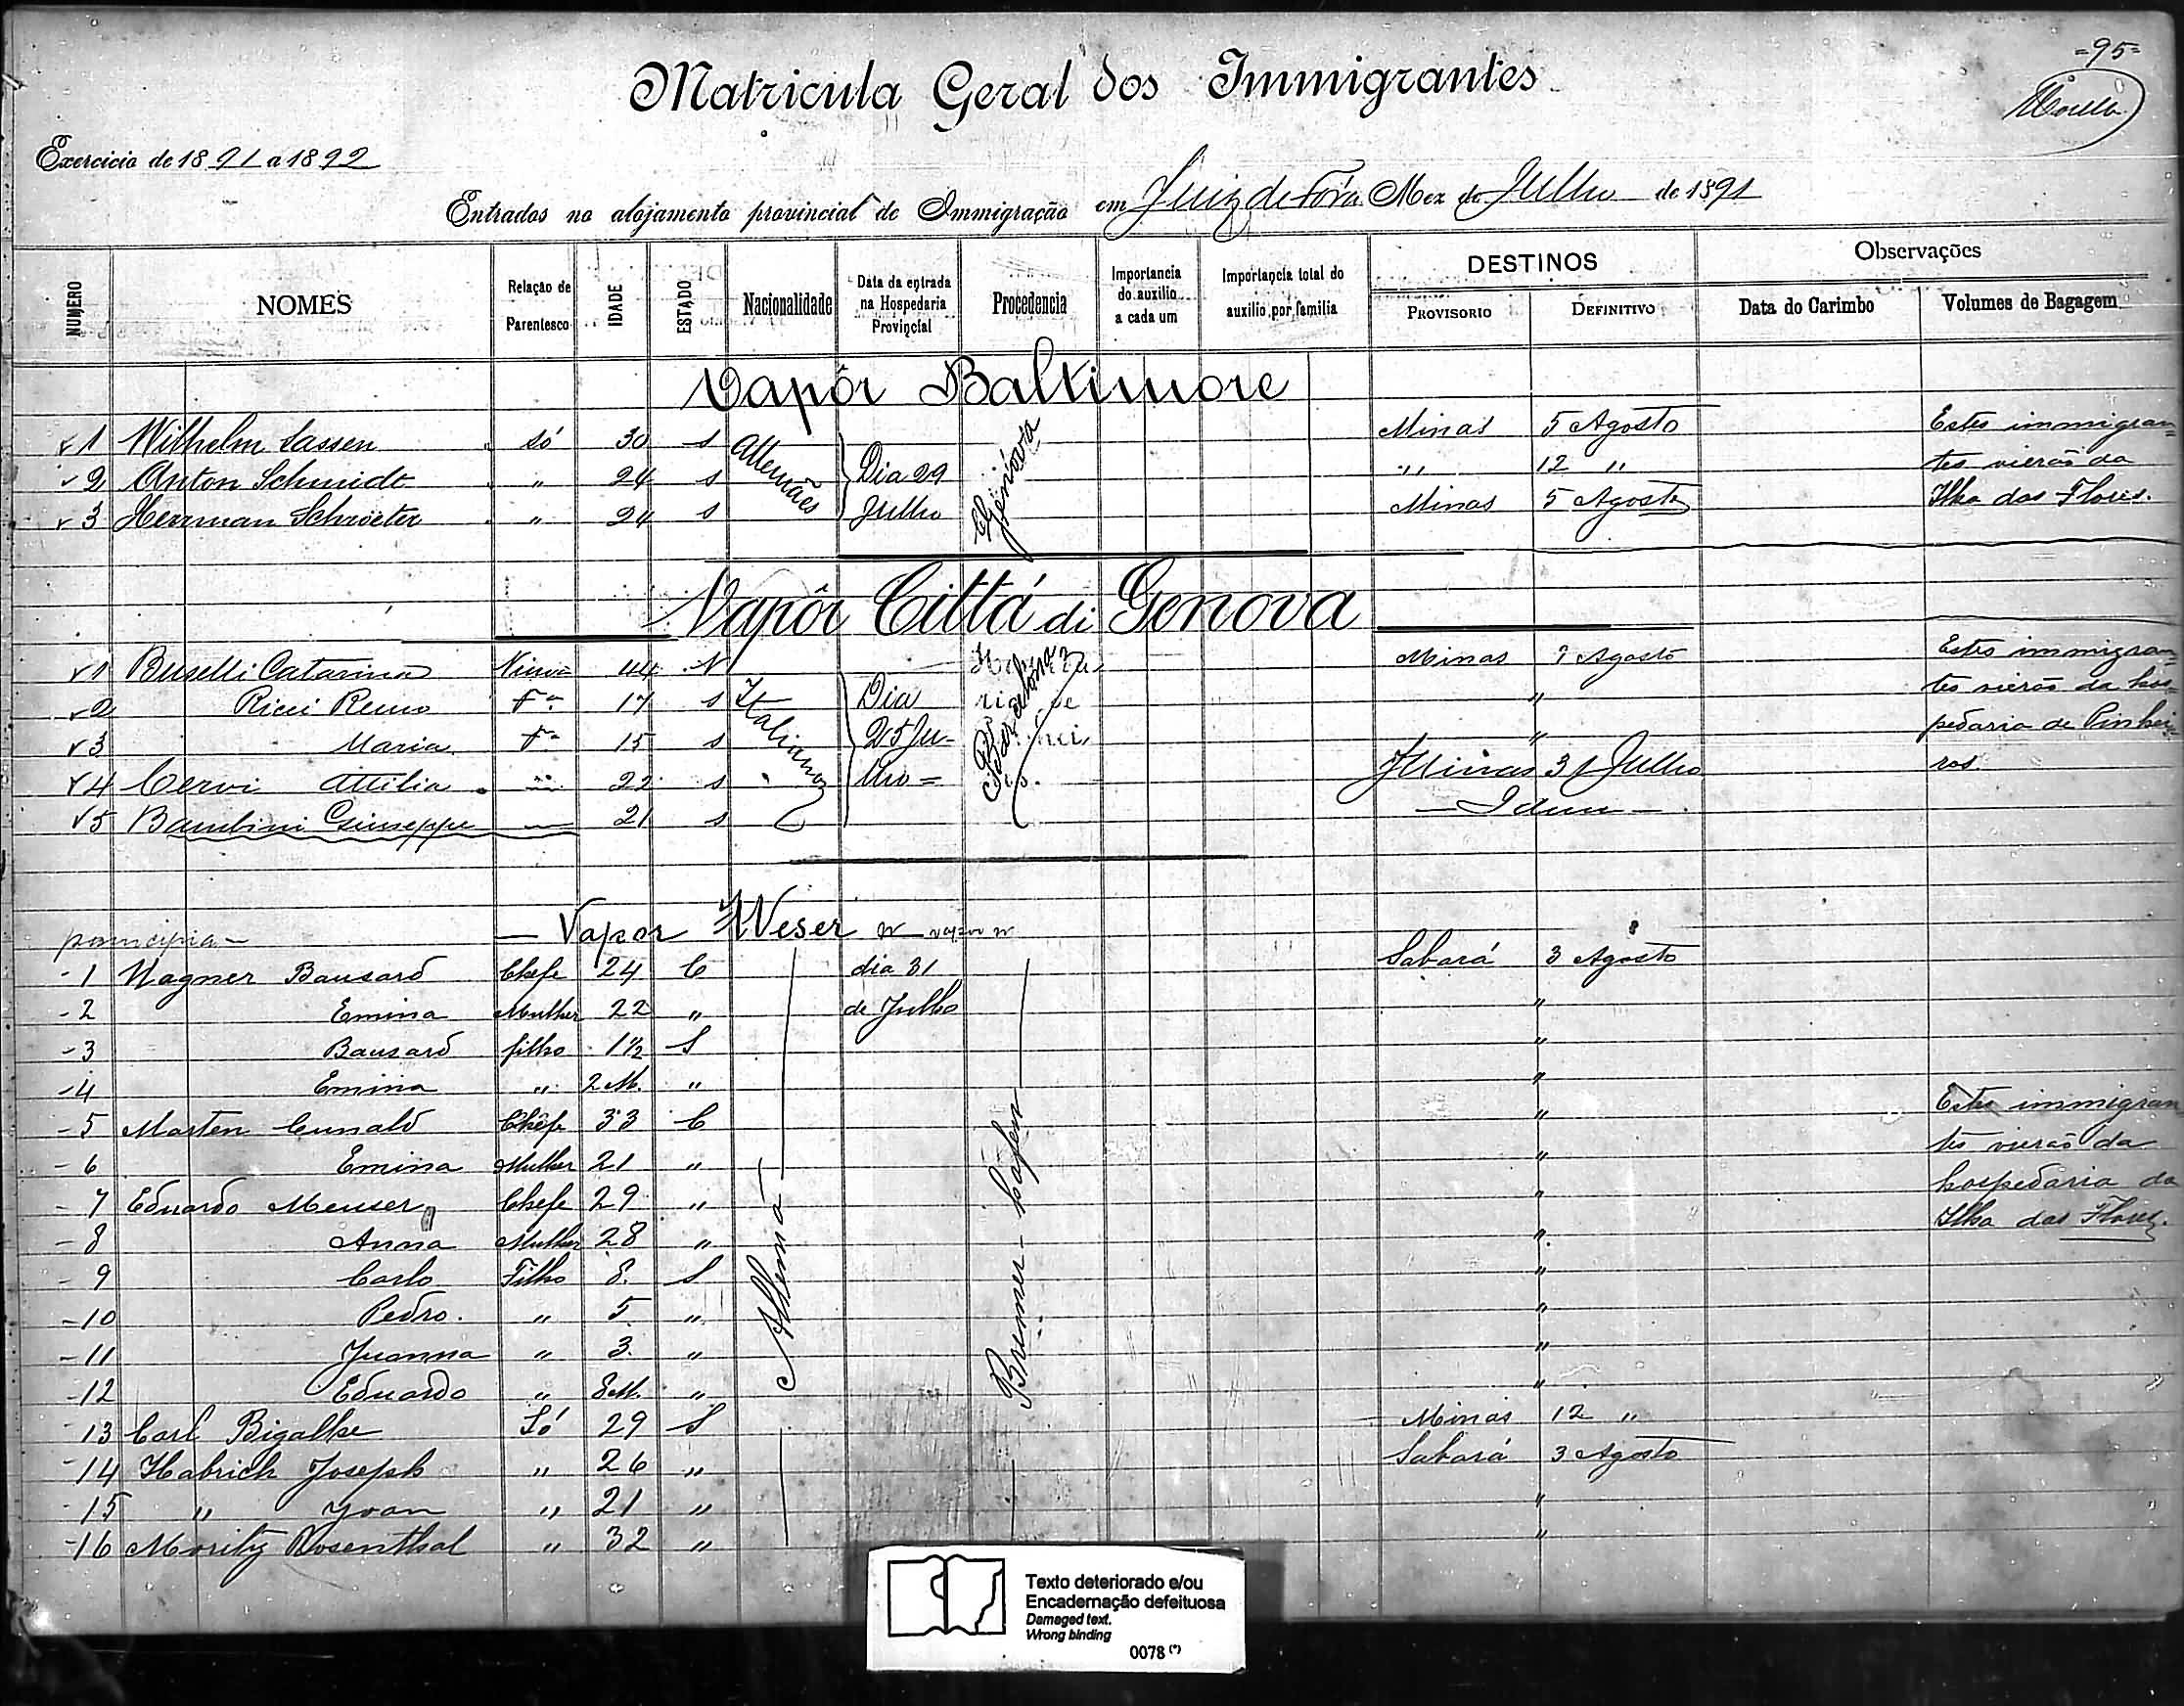 =95=
Matricula Geral dos Immigrantes
Exercicio de 1891 a 1892
Entrados no alojamento provincial de Immigração em Juiz de Fóra Mez de Julho de 1891
NUMERO NOMES Relação de Parentesco IDADE ESTADO Nacionalidade Data da entrada na Hospedaria Provincial Procedencia Importancia do auxilio a cada um Importancia total do auxilio por familia DESTINOS PROVISORIO DEFINITIVO Observações Data do Carimbo Volumes de Bagagem
Vapôr Baltimore
1 Wilhelm Sassen Só 30 s Allemães Dia 29 Genóva Minas 5 Agosto Estes immigran=
2 Anton Schmidt " 24 s Julho " 12 " tes vierão da
3 Herrman Schroeter " 24 s Minas 5 Agosto Ilha das Flores.
Vapôr Cittá di Genova
1 Buselli Catarina Viuva 44 V Italianos Dia Minas Agosto Estes immigran=
2 Ricci Remo Fº 17 s 25 Ju- " tes vierão da hos-
3 Maria Fª 15 s lho = " pedaria de Pinhei-
4 Cervi Attilia " 22 s Minas 31 Julho ros.
5 Bambini Giuseppe — 21 s — Idem —
— Vapor Weser
1 Wagner Bausard Chefe 24 C dia 31 Sabará 3 Agosto
2 Emina Mulher 22 " de Julho "
3 Bausard filho 1½ S "
4 Emina " 2 M. " "
5 Marten Cunald Chefe 33 C " Estes immigran
6 Emina Mulher 21 " " tes vierão da
7 Eduardo Meuser Chefe 29 " " hospedaria da
8 Anna Mulher 28 " " Ilha das Flores.
9 Carlo Filho 8. S "
10 Pedro. " 5 " "
11 Juanna " 3. " "
12 Eduardo " 8 M. " "
Allemã
Bremer-hafen
13 Carl Bigalke Só 29 S Minas 12 "
14 Habrich Joseph " 26 " Sabará 3 Agosto
15 " Yvan " 21 " "
16 Moritz Rosenthal " 32 " "
Texto deteriorado e/ou
Encadernação defeituosa
Damaged text.
Wrong binding
0078 (*)